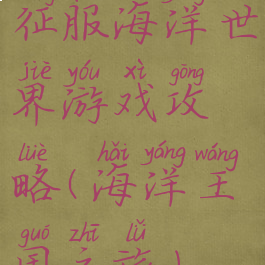 征服海洋世
jiè yóu xì gōng
界游戏攻
lüè hǎi yáng wáng
略(海洋王
guó zhī lǚ
国之旅)